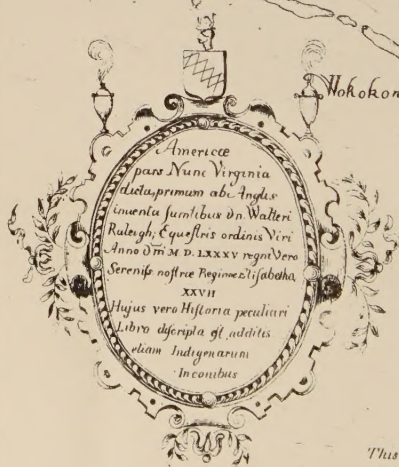 Wokokon
Americæ
pars Nunc Virginia
dicta, primum ab Anglis
inventa sumtibus Dn. Walteri
Raleigh, Equestris ordinis Viri
Anno Dñi M D. LXXXV regni Vero
Sereniss nostræ Reginæ Elisabetha
XXVII
Hujus vero Historia peculiari
Libro discripta est, additis
etiam Indigenarum
Inconibus
This